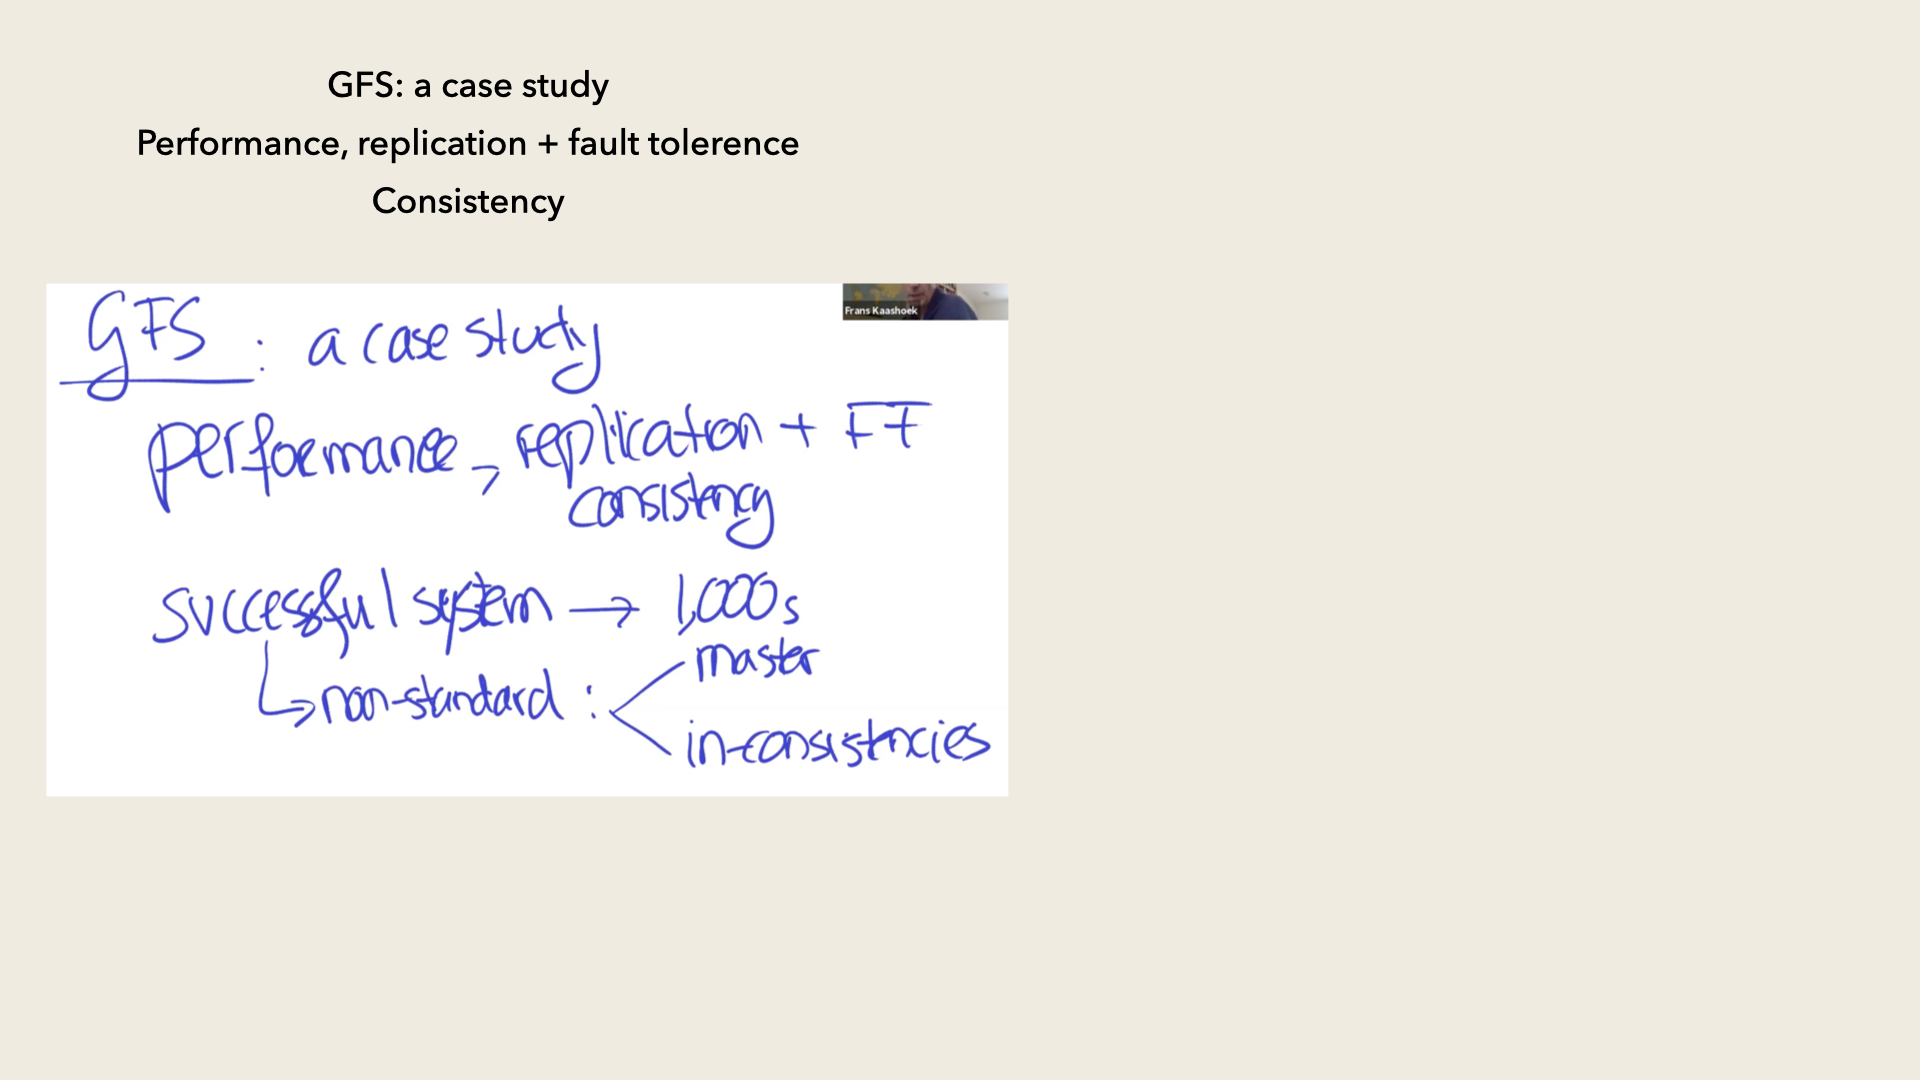 GFS: a case study
Performance, replication + fault tolerence
Consistency
Frans Kaashoek
GFS : a case study
performance, replication + FT
consistency
successful system → 1,000s
master
↳ non-standard :
in-consistencies